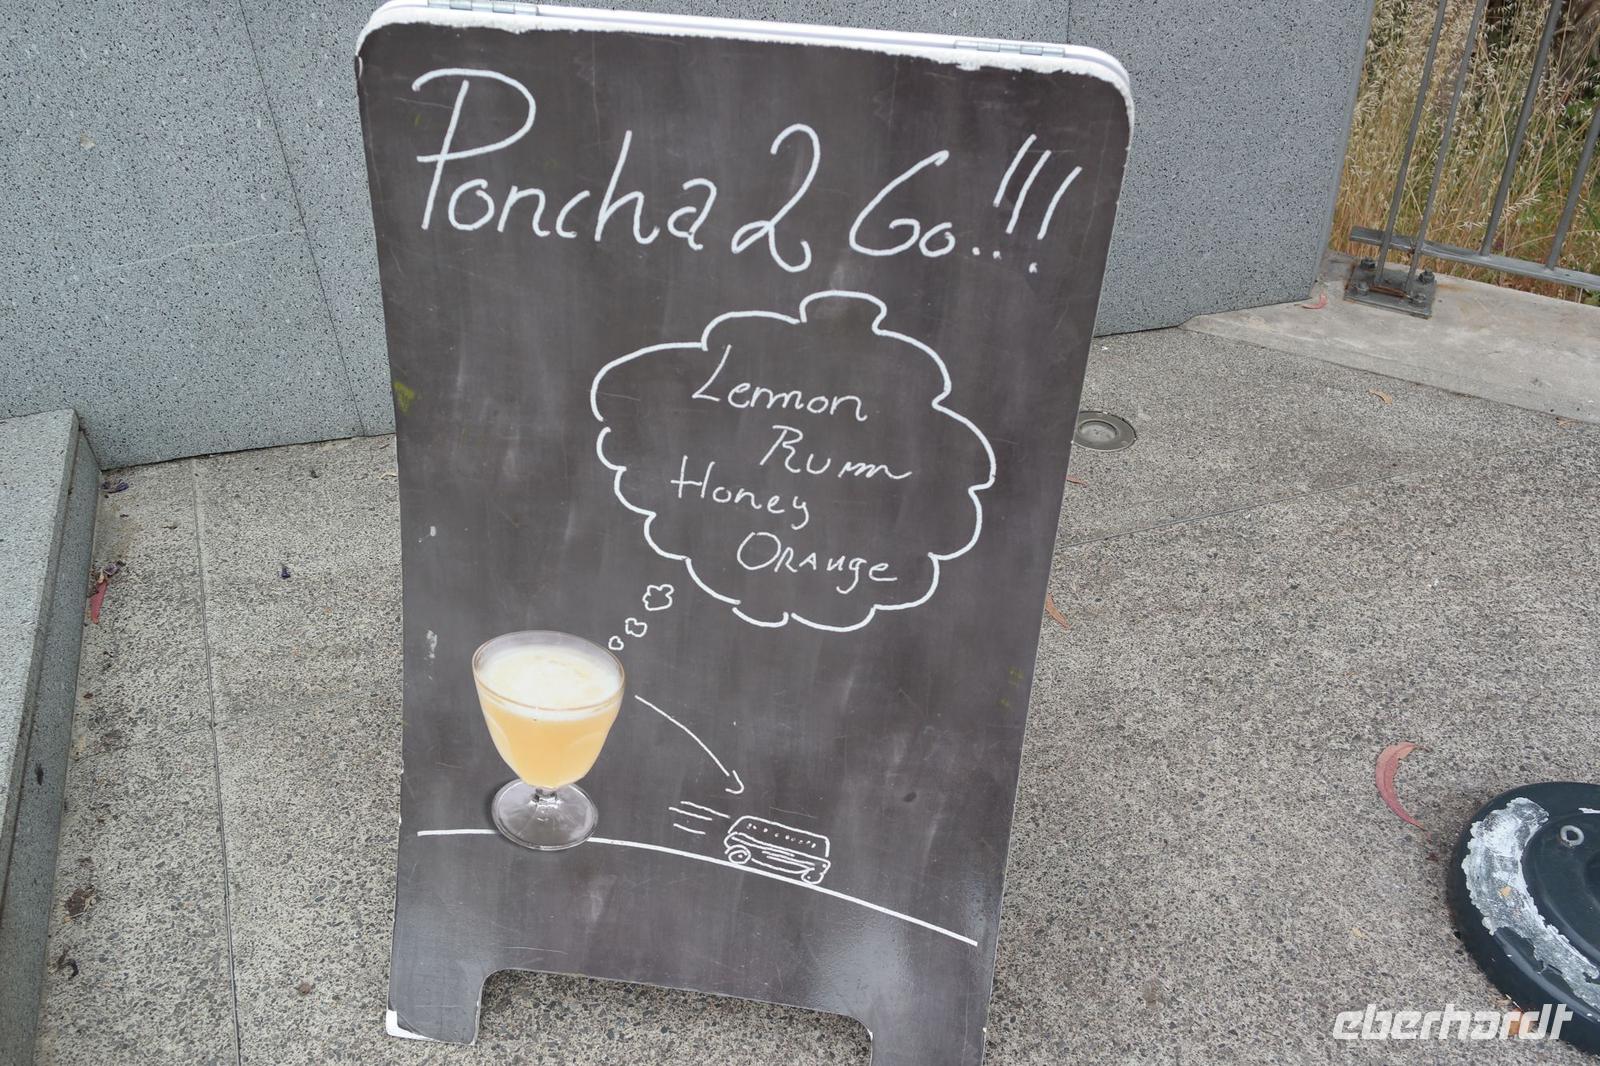 Poncha 2 Go!!!
Lemon
Rum
Honey
Orange
eberhardt